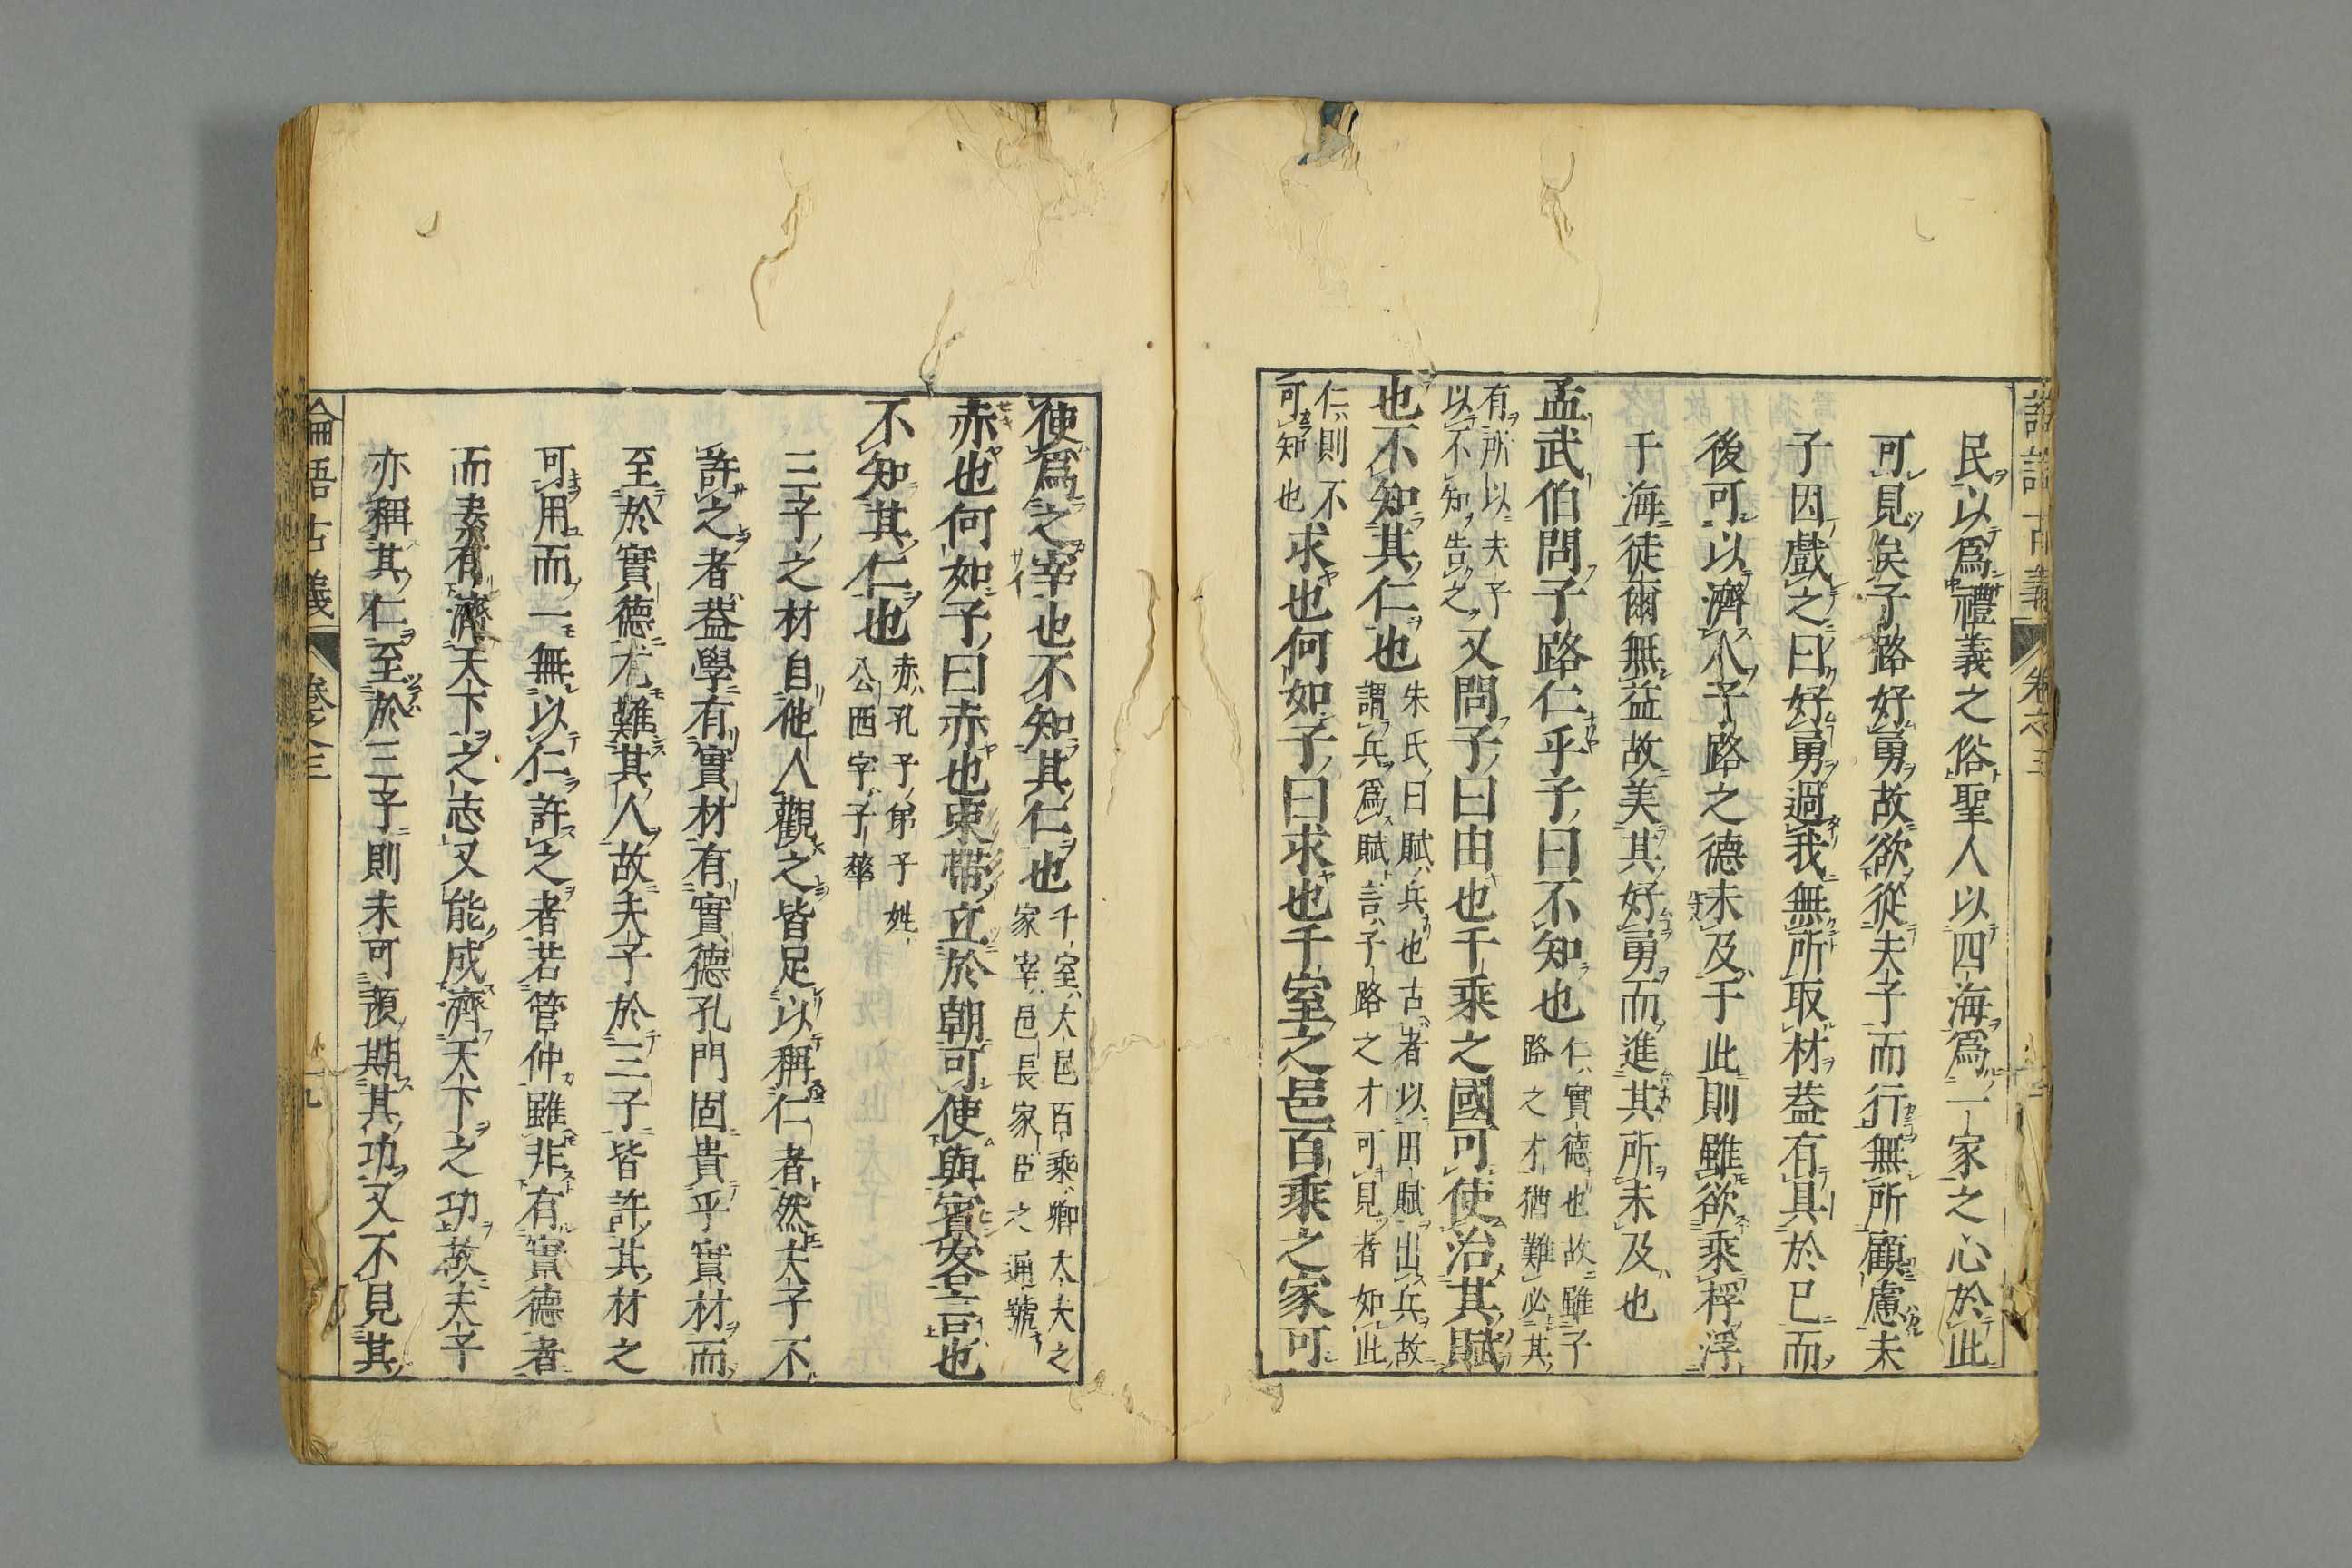 民以爲禮義之俗聖人以四海爲一家之心於此
可見矣子路好勇故欲從夫子而行無所顧慮未
子因戲之曰好勇過我無所取材蓋有具於已而
後可以濟人子路之德未及于此則雖欲乘桴浮
于海徒爾無益故美其好勇而進其所未及也
孟武伯問子路仁乎子曰不知也仁實德也故雖子
路之才猶難必其
有所以夫子
以不知告之又問子曰由也千乘之國可使治其賦
也不知其仁也朱氏曰賦兵也古者以田賦出兵故
謂兵爲賦言子路之才可見者如此
仁則不
可知也求也何如子曰求也千室之邑百乘之家可
使爲之宰也不知其仁也千室大邑百乘卿大夫之
家宰邑長家臣之通號
赤也何如子曰赤也束帶立於朝可使與賓客言也
不知其仁也赤孔子弟子姓
公西字子華
三子之材自他人觀之皆足以稱仁者然夫子不
許之者蓋學有實材有實德孔門固貴乎實材而
至於實德尤難其人故夫子於三子皆許其材之
可用而一無以仁許之者若管仲雖非有實德者
而素有濟天下之志又能成濟天下之功故夫子
亦稱其仁至於三子則未可預期其功又不見其
論語古義 卷之三